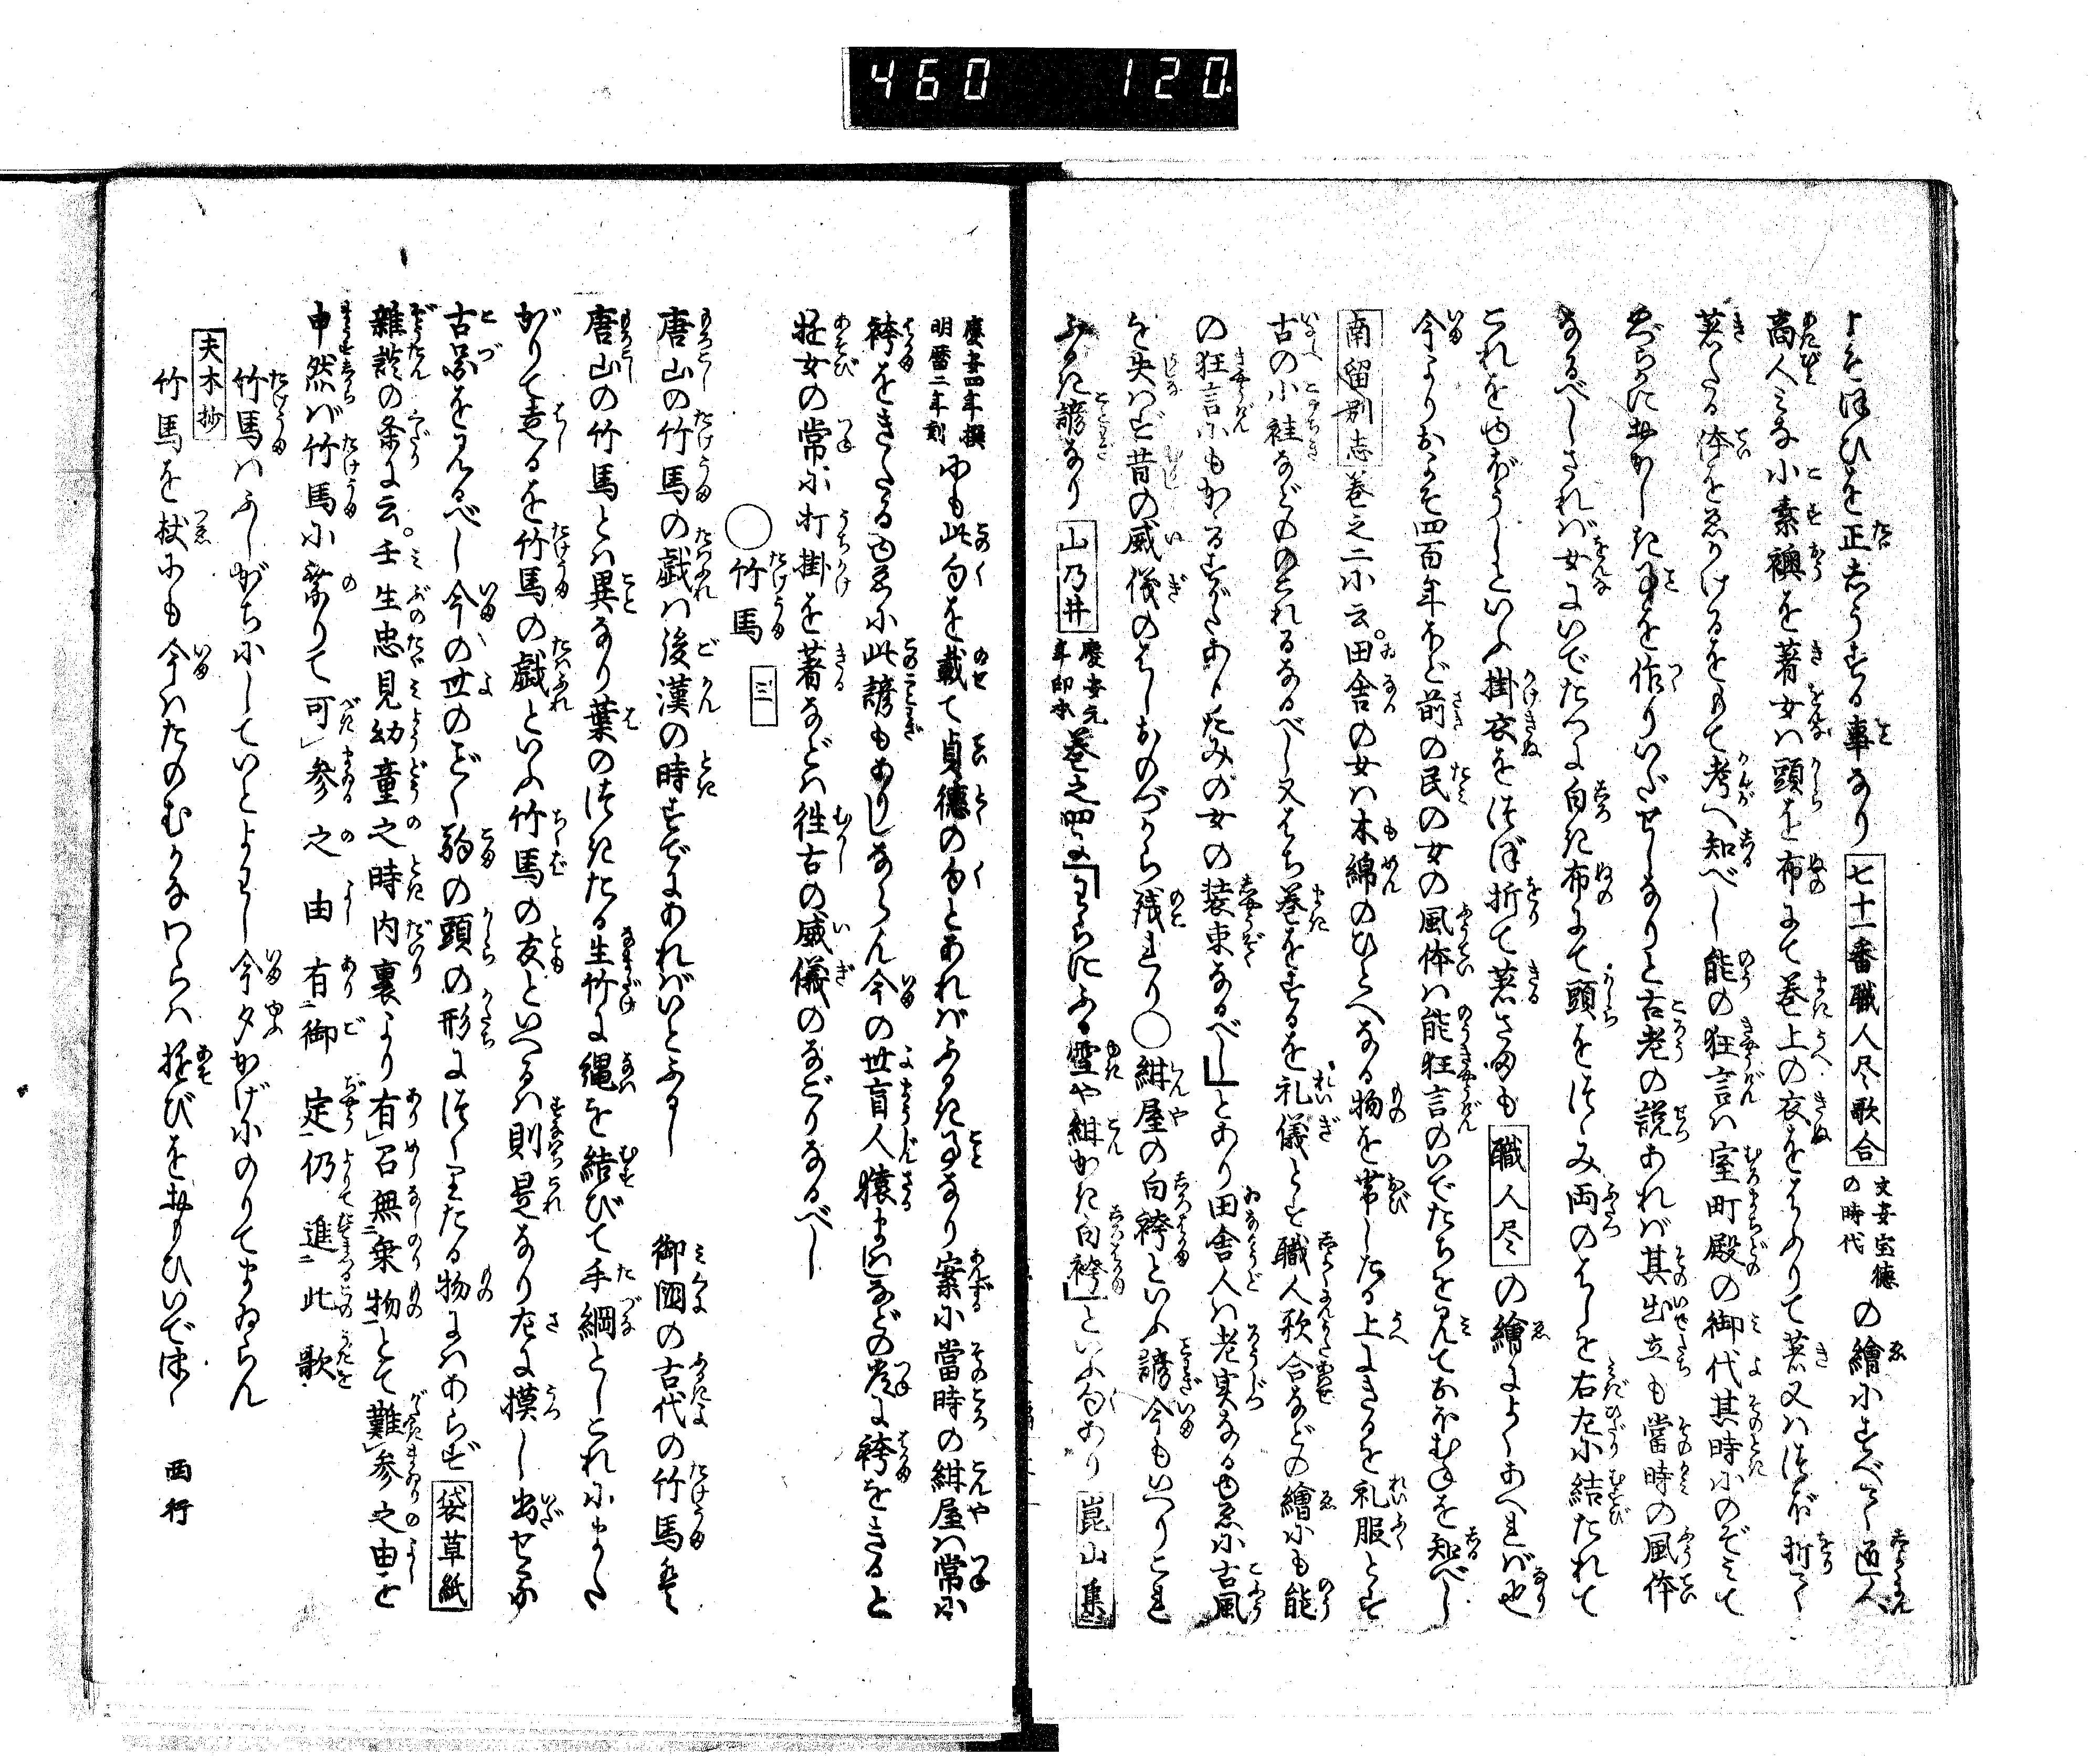 460 120
よそほひを正しうする事なり 七十一番職人尽歌合 文安宝徳の時代 の繪にすべて通人
商人みな小素襖を著女は頭を布にて巻上の衣をはふりて著又はつぼ折て
著たる体をゑがけるをもて考へ知べし能の狂言は室町殿の御代其時にのぞみて
めづらかにをかしき事を作りいだせしなりと古老の説あれば其出立も當時の風体
なるべしされば女にいでたつに白き布にて頭をつゝみ両のはしを右左に結たれて
これをゆがうしといふ掛衣をつぼ折て著さまも 職人尽 の繪によくあへれば也
今よりおよそ四百年ほど前の民の女の風体は能狂言のいでたちを見ておほむねを知べし
南留別志 巻之二に云。田舎の女は木綿のひとへなる物を帯したる上にきるを礼服とす
古の小袿などののこれるなるべし又はち巻をするを礼儀とす職人歌合などの繪にも能
の狂言にもかゝるすがたありたみの女の装束なるべし」とあり田舎人は老実なるゆゑに古風
を失はず昔の威儀のはしおのづから残れり○紺屋の白袴といふ諺今もいへりこれ
ふるき諺なり 山乃井 慶安元年印本 巻之四に「そらにふる雪や紺かき白袴」といふ句あり 崑山集
慶安四年撰 明暦二年刻 にも此句を載て貞徳の句とあればふるき事なり案に當時の紺屋は常に
袴をきたるゆゑに此諺もありしならん今の世盲人猿まはしなどの常に袴をきると
遊女の常に打掛を著などは往古の威儀のなごりなるべし
○竹馬 三
唐山の竹馬の戯は後漢の時すでにあればいとふるし 御國の古代の竹馬は
唐山の竹馬とは異なり葉のつきたる生竹に縄を結びて手綱としこれにまた
がりて走るを竹馬の戯といふ竹馬の友といへるは則是なり左に摸し出せる
古図を見るべし今の世のごく駒の頭の形につくりたる物にはあらず 袋草紙
雑談の条に云。壬生忠見幼童之時内裏より有召無乗物とて難参之由を
申然ば竹馬に乗りて可参之由有御定仍進此歌
竹馬はふしがちにしていとよわし今夕かげにのりてまゐらん
夫木抄
竹馬を杖にも今はたのむかなわらは遊びをおもひいでつゝ 西行